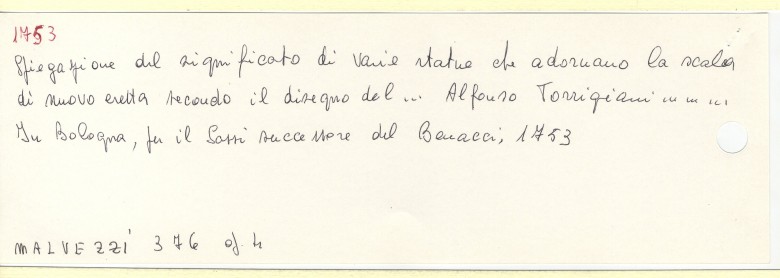 1753
Spiegazione del significato di varie statue che adornano la scala
di nuovo eretta secondo il disegno del ... Alfonso Torrigiani ... ... ...
In Bologna, per il Sassi successore del Benacci, 1753
MALVEZZI 376 op. 4